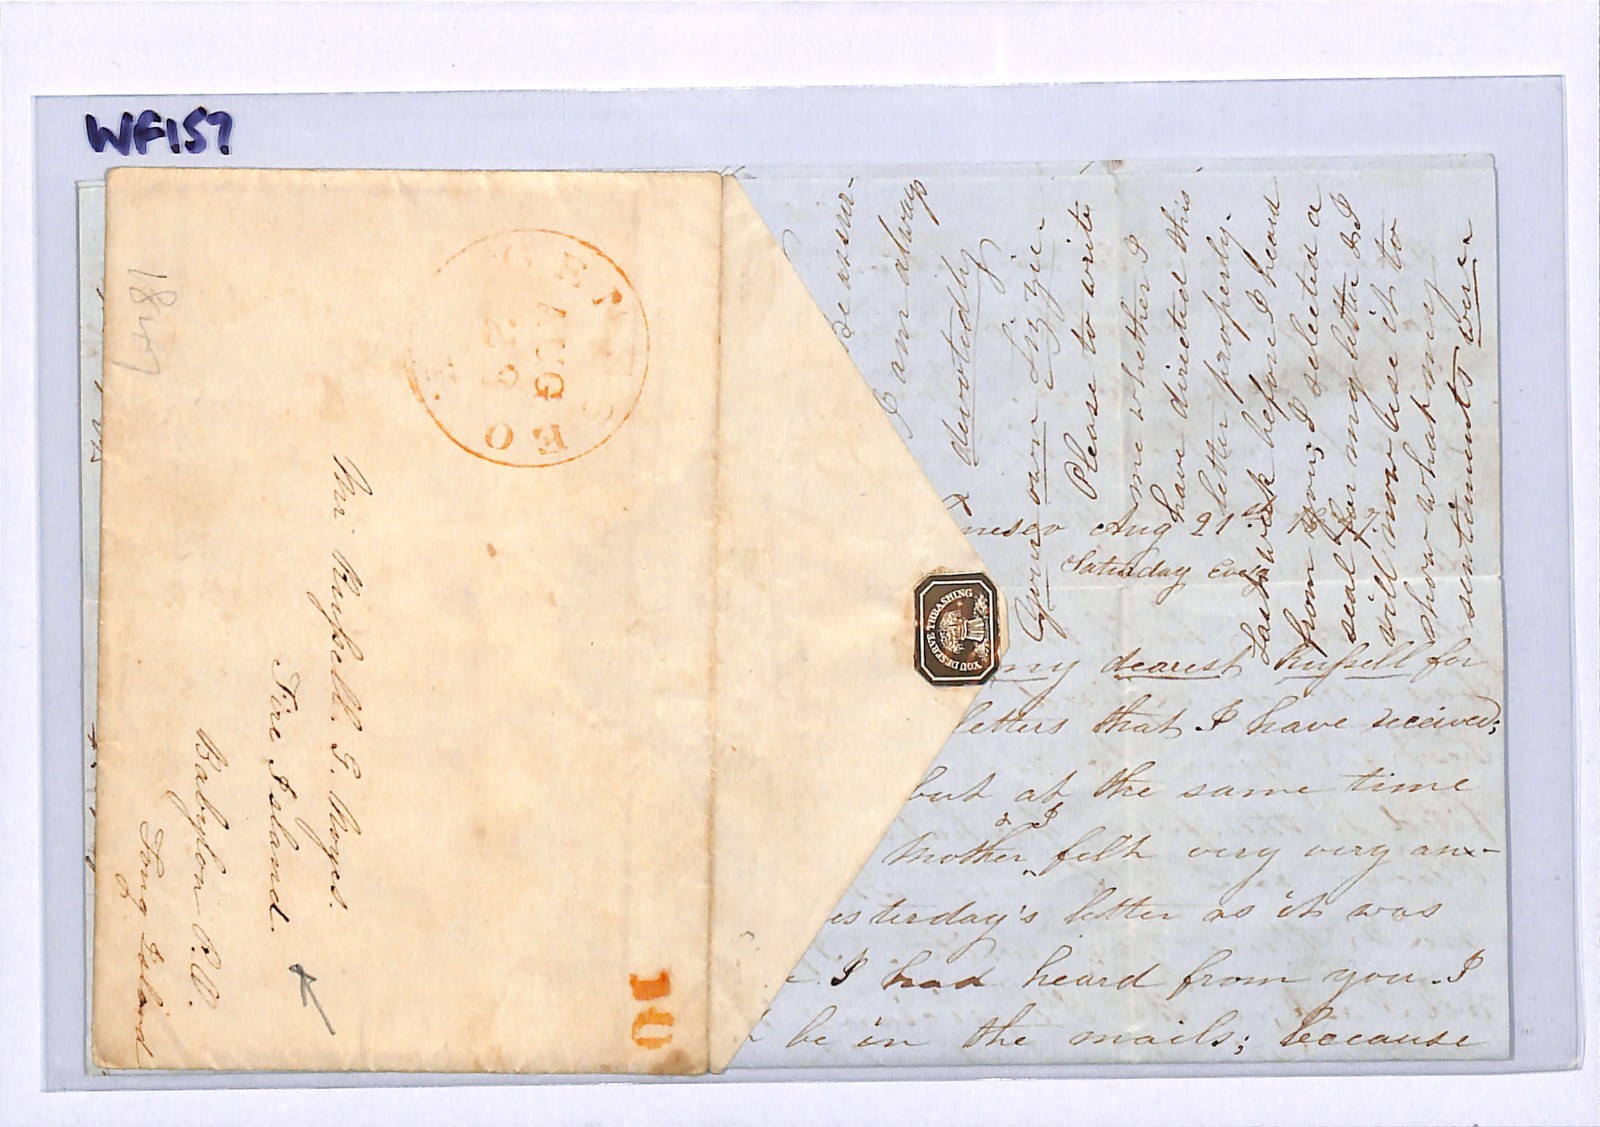 WF157
1847
GENESEO
AUG
Mr. Russell. G. Noyes.
Fire Island.
Babylon P.O.
Long Island
10
YOU DESERVE THRASHING
I am always
devotedly
Your own Lizzie.
Please to write
me whether I
have directed this
letter properly.
Last week before I heard
from you; I selected a
seal for my letter & I
will now use it to
show what my
sentiments were.
neseo Aug 21st 1847.
Saturday Eve'g
my dearest Russell for
letters that I have received;
but at the same time
Mother & I felt very very anx-
esterday's letter as it was
I had heard from you. I
be in the mails; because